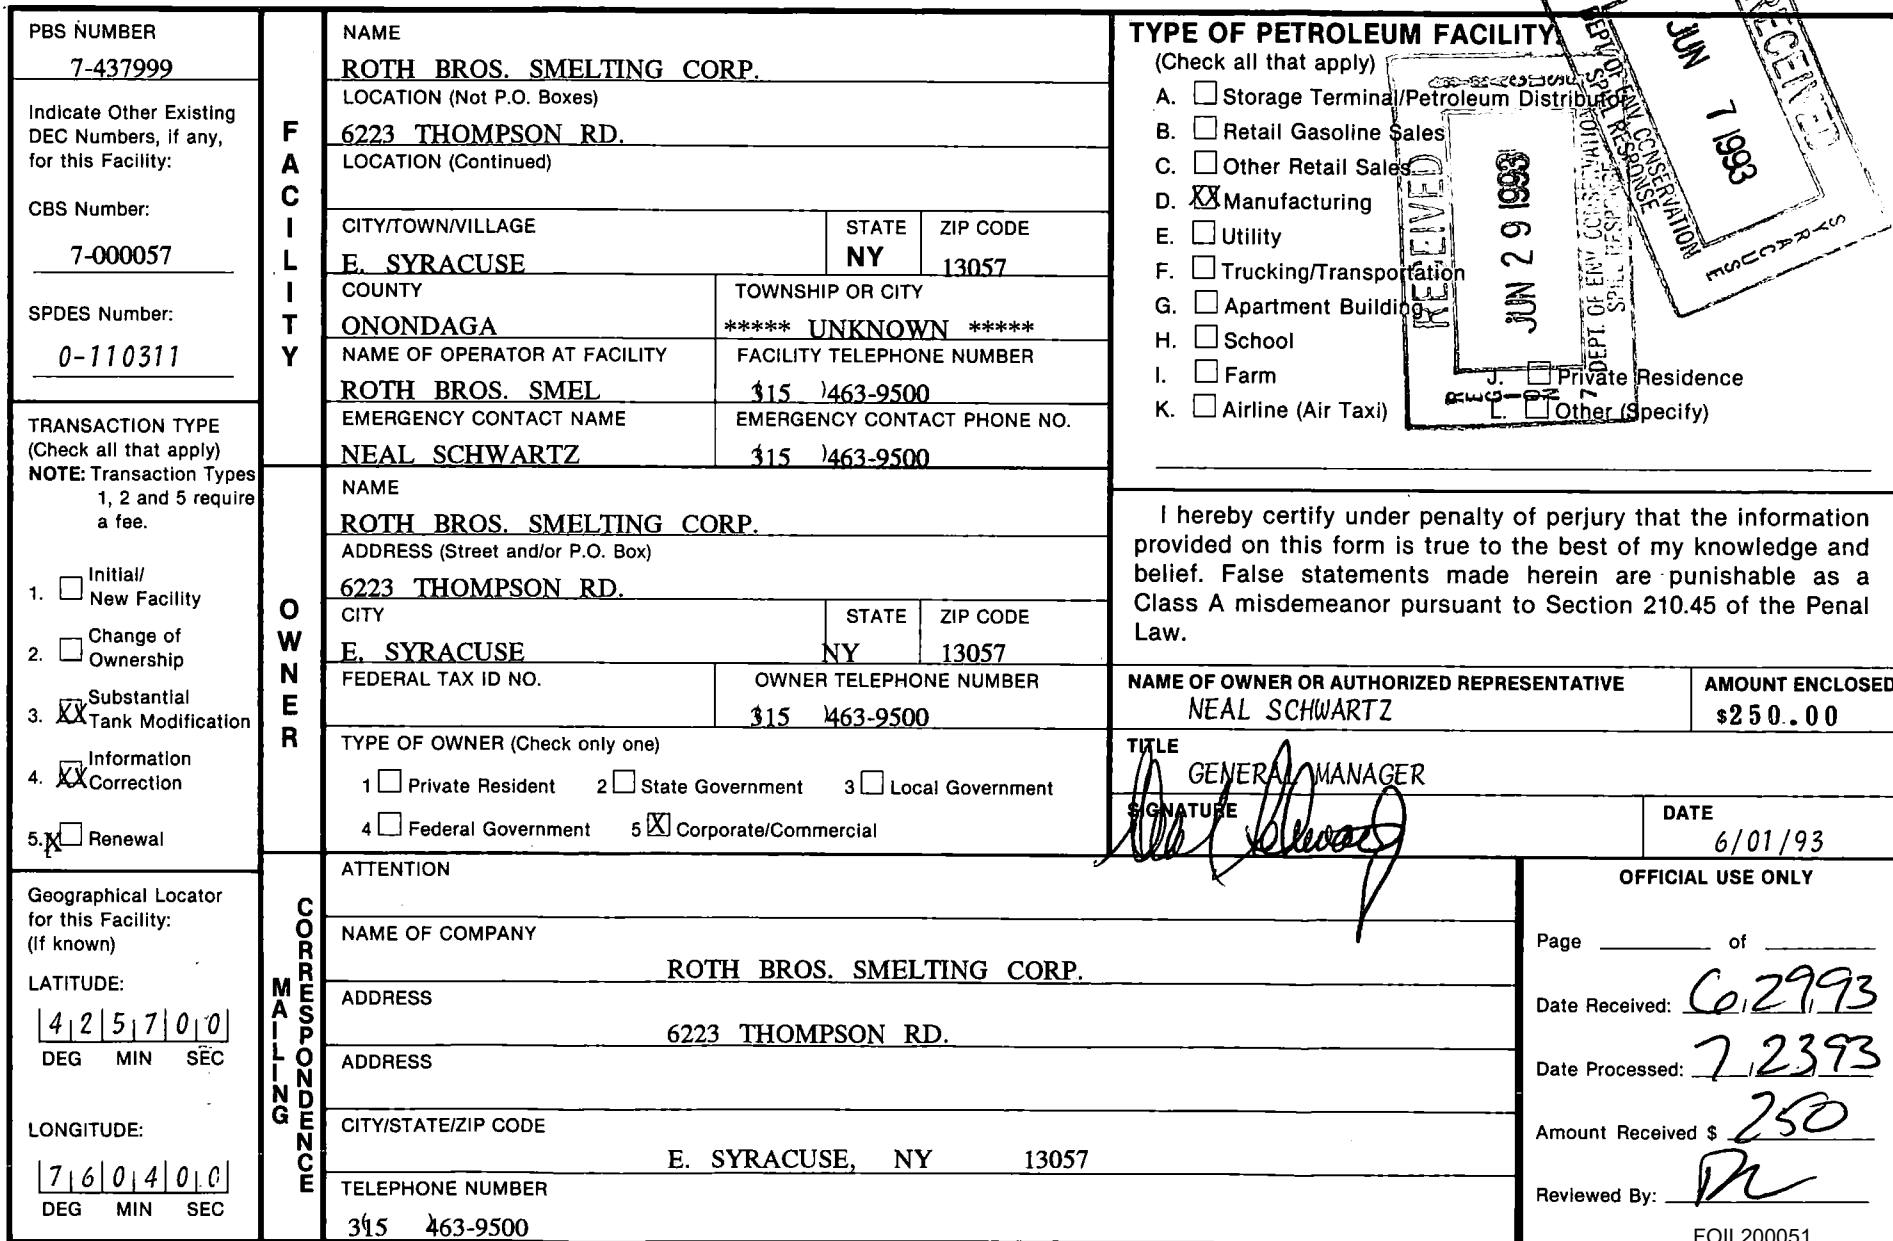 PBS NUMBER
7-437999
Indicate Other Existing
DEC Numbers, if any,
for this Facility:
CBS Number:
7-000057
SPDES Number:
0-110311
TRANSACTION TYPE
(Check all that apply)
NOTE: Transaction Types
1, 2 and 5 require
a fee.
1. Initial/
New Facility
2. Change of
Ownership
3. XX Substantial
Tank Modification
4. XX Information
Correction
5. X Renewal
Geographical Locator
for this Facility:
(If known)
LATITUDE:
4 2 5 7 0 0
DEG MIN SEC
LONGITUDE:
7 6 0 4 0 0
DEG MIN SEC
FACILITY
NAME
ROTH BROS. SMELTING CORP.
LOCATION (Not P.O. Boxes)
6223 THOMPSON RD.
LOCATION (Continued)
CITY/TOWN/VILLAGE STATE ZIP CODE
E. SYRACUSE NY 13057
COUNTY TOWNSHIP OR CITY
ONONDAGA ***** UNKNOWN *****
NAME OF OPERATOR AT FACILITY FACILITY TELEPHONE NUMBER
ROTH BROS. SMEL (315 )463-9500
EMERGENCY CONTACT NAME EMERGENCY CONTACT PHONE NO.
NEAL SCHWARTZ (315 )463-9500
OWNER
NAME
ROTH BROS. SMELTING CORP.
ADDRESS (Street and/or P.O. Box)
6223 THOMPSON RD.
CITY STATE ZIP CODE
E. SYRACUSE NY 13057
FEDERAL TAX ID NO. OWNER TELEPHONE NUMBER
(315 )463-9500
TYPE OF OWNER (Check only one)
1 Private Resident 2 State Government 3 Local Government
4 Federal Government 5 X Corporate/Commercial
MAILING CORRESPONDENCE
ATTENTION
NAME OF COMPANY
ROTH BROS. SMELTING CORP.
ADDRESS
6223 THOMPSON RD.
ADDRESS
CITY/STATE/ZIP CODE
E. SYRACUSE, NY 13057
TELEPHONE NUMBER
(315 )463-9500
TYPE OF PETROLEUM FACILITY
(Check all that apply)
A. Storage Terminal/Petroleum Distributor
B. Retail Gasoline Sales
C. Other Retail Sales
D. XX Manufacturing
E. Utility
F. Trucking/Transportation
G. Apartment Building
H. School
I. Farm J. Private Residence
K. Airline (Air Taxi) L. Other (Specify)
RECEIVED
JUN 29 1993
DEPT. OF ENV. CONSERVATION
SPILL RESPONSE
REGION 7
RECEIVED
JUN 7 1993
DEPT. OF ENV. CONSERVATION
SPILL RESPONSE
SYRACUSE
I hereby certify under penalty of perjury that the information
provided on this form is true to the best of my knowledge and
belief. False statements made herein are punishable as a
Class A misdemeanor pursuant to Section 210.45 of the Penal
Law.
NAME OF OWNER OR AUTHORIZED REPRESENTATIVE AMOUNT ENCLOSED
NEAL SCHWARTZ $250.00
TITLE
GENERAL MANAGER
SIGNATURE DATE
6/01/93
OFFICIAL USE ONLY
Page of
Date Received: 6,29,93
Date Processed: 7,23,93
Amount Received $ 250
Reviewed By:
FOIL200051